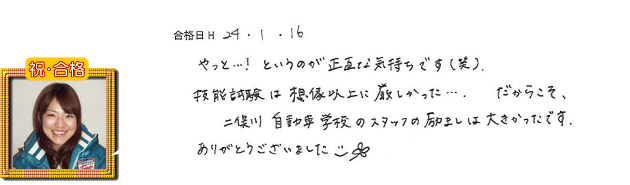 合格日 H 24.1.16
祝・合格
やっと…！というのが正直な気持ちです(笑).
技能試験は想像以上に厳しかった…. だからこそ、
二俣川自動車学校のスタッフの励ましは大きかったです.
ありがとうございました